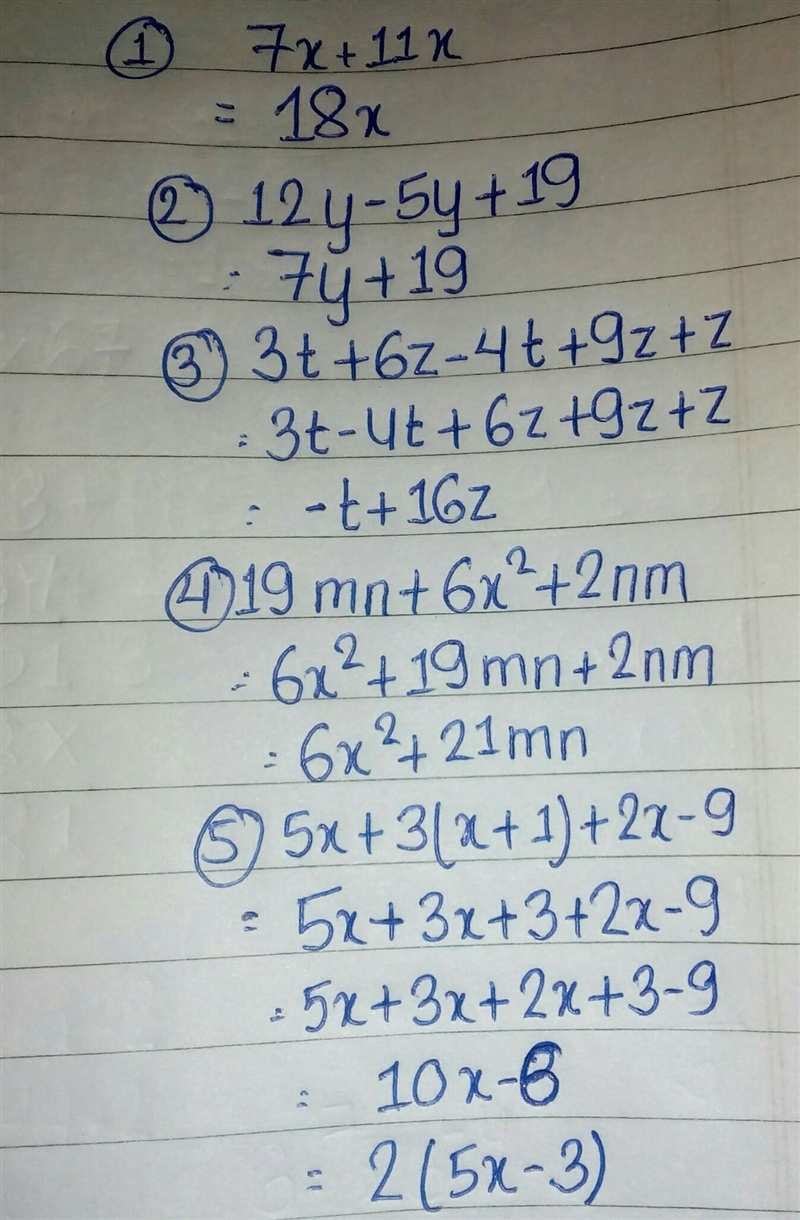 ① 7x+11x
= 18x
② 12y-5y+19
= 7y+19
③ 3t+6z-4t+9z+z
= 3t-4t+6z+9z+z
= -t+16z
④ 19mn+6x²+2nm
= 6x²+19mn+2nm
= 6x²+21mn
⑤ 5x+3(x+1)+2x-9
= 5x+3x+3+2x-9
= 5x+3x+2x+3-9
= 10x-6
= 2(5x-3)